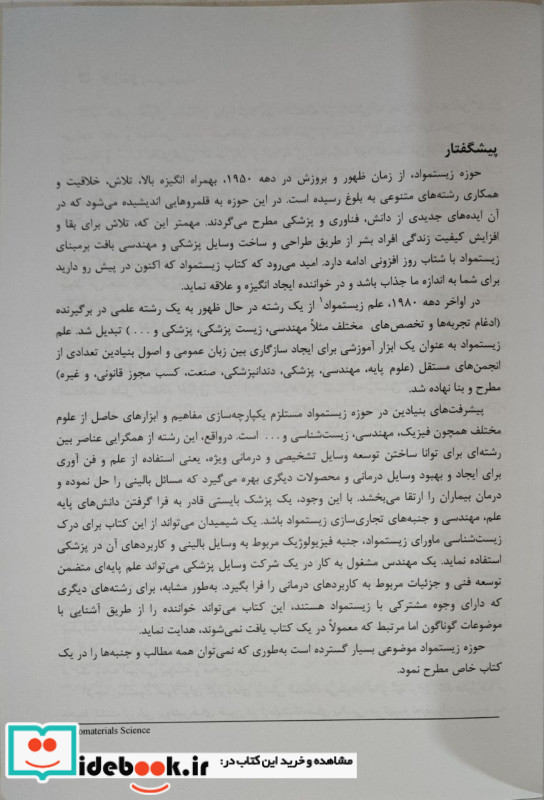 پیشگفتار
حوزه زیستمواد، از زمان ظهور و بروزش در دهه ۱۹۵۰، بهمراه انگیزه بالا، تلاش، خلاقیت و
همکاری رشته‌های متنوعی به بلوغ رسیده است. در این حوزه به قلمروهایی اندیشیده می‌شود که در
آن ایده‌های جدیدی از دانش، فناوری و پزشکی مطرح می‌گردند. مهمتر این که، تلاش برای بقا و
افزایش کیفیت زندگی افراد بشر از طریق طراحی و ساخت وسایل پزشکی و مهندسی بافت برمبنای
زیستمواد با شتاب روز افزونی ادامه دارد. امید می‌رود که کتاب زیستمواد که اکنون در پیش رو دارید
برای شما به اندازه ما جذاب باشد و در خواننده ایجاد انگیزه و علاقه نماید.
در اواخر دهه ۱۹۸۰، علم زیستمواد۱ از یک رشته در حال ظهور به یک رشته علمی در برگیرنده
(ادغام تجربه‌ها و تخصص‌های مختلف مثلاً مهندسی، زیست پزشکی، پزشکی و . . . ) تبدیل شد. علم
زیستمواد به عنوان یک ابزار آموزشی برای ایجاد سازگاری بین زبان عمومی و اصول بنیادین تعدادی از
انجمن‌های مستقل (علوم پایه، مهندسی، پزشکی، دندانپزشکی، صنعت، کسب مجوز قانونی، و غیره)
مطرح و بنا نهاده شد.
پیشرفت‌های بنیادین در حوزه زیستمواد مستلزم یکپارچه‌سازی مفاهیم و ابزارهای حاصل از علوم
مختلف همچون فیزیک، مهندسی، زیست‌شناسی و . . . است. درواقع، این رشته از همگرایی عناصر بین
رشته‌ای برای توانا ساختن توسعه وسایل تشخیصی و درمانی ویژه، یعنی استفاده از علم و فن آوری
برای ایجاد و بهبود وسایل درمانی و محصولات دیگری بهره می‌گیرد که مسائل بالینی را حل نموده و
درمان بیماران را ارتقا می‌بخشد. با این وجود، یک پزشک بایستی قادر به فرا گرفتن دانش‌های پایه
علم، مهندسی و جنبه‌های تجاری‌سازی زیستمواد باشد. یک شیمیدان می‌تواند از این کتاب برای درک
زیست‌شناسی ماورای زیستمواد، جنبه فیزیولوژیک مربوط به وسایل بالینی و کاربردهای آن در پزشکی
استفاده نماید. یک مهندس مشغول به کار در یک شرکت وسایل پزشکی می‌تواند علم پایه‌ای متضمن
توسعه فنی و جزئیات مربوط به کاربردهای درمانی را فرا بگیرد. به‌طور مشابه، برای رشته‌های دیگری
که دارای وجوه مشترکی با زیستمواد هستند، این کتاب می‌تواند خواننده را از طریق آشنایی با
موضوعات گوناگون اما مرتبط که معمولاً در یک کتاب یافت نمی‌شوند، هدایت نماید.
حوزه زیستمواد موضوعی بسیار گسترده است به‌طوری که نمی‌توان همه مطالب و جنبه‌ها را در یک
کتاب خاص مطرح نمود.
omaterials Science
مشاهده و خرید این کتاب در:
iidebook.ir